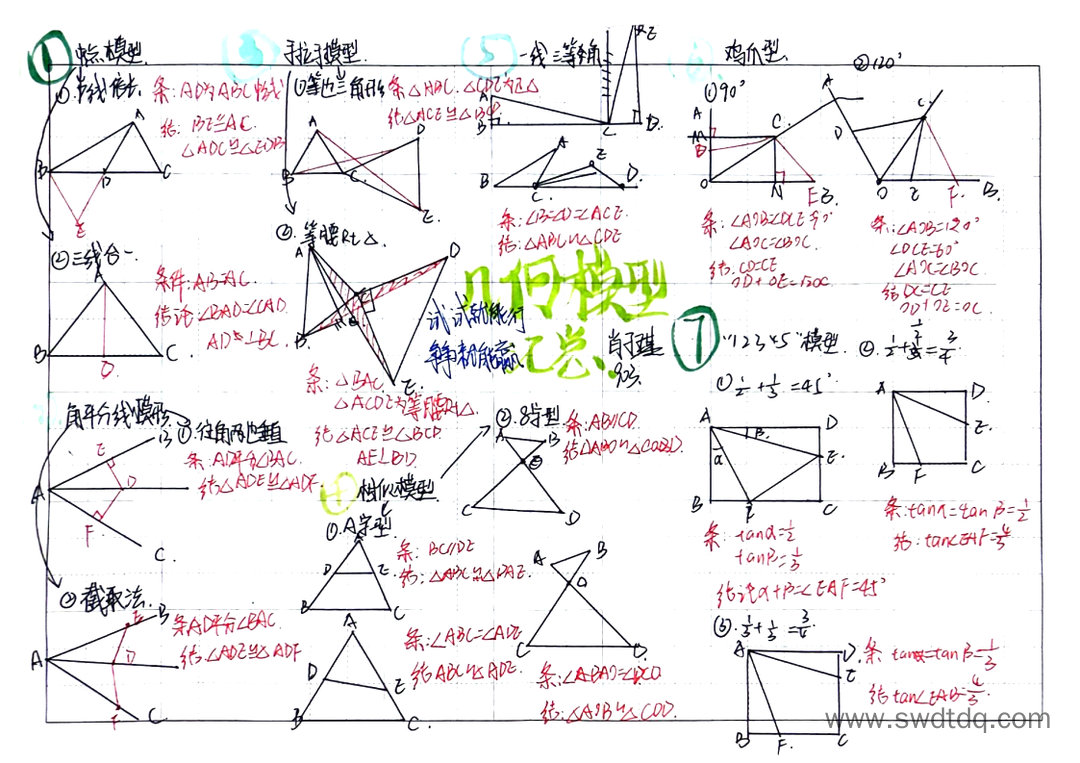 ① 中点模型
①.中线倍长
条: AD为ABC中线
结: BE≌AC.
△ADC≌△EDB
A
B
D
C
E
②三线合一
条件: AB=AC.
结论∠BAD=∠CAD
AD⊥BC.
A
B
D
C
角平分线模型
①.往角两边垂
条: AD平分∠BAC.
结△ADE≌△ADF.
B
E
A
D
F
C.
②截取法.
条AD平分∠BAC.
结∠ADE≌△ADF
E
B
A
D
F
C.
3 手拉手模型
①等边三角形
条△ABC. △CDE为正△
结△ACE≌△BCD
A
D
B
C.
E.
②.等腰Rt△.
A
D
B
C
E.
条: △BAC
△ACDE为等腰Rt△.
结△ACE≌△BCD.
AE⊥BD
4 相似模型.
①.A字型.
条: BC//DE
结: △ABC∽△DAE.
A
D
E
B
C
条:∠ABC=∠ADE
结ABC∽ADE.
A
D
E
B
C
②.8字型
条: AB//CD.
A
B
C
D
条:∠ABO=∠DCO
结:△AOB∽△COD.
A
B
O
C
D
5 一线三等角
A
B
C
D.
E
B
A
C
E
D.
条: ∠B=∠D=∠ACE.
结: △ABC∽△CDE
几何模型
汇总.
试试就能行
争争就能赢
6 鸡爪型
①90°
A
M
D
O
C
N
E
B.
条: ∠AOB=∠DCE=90°
∠AOC=∠BOC.
结. CD=CE
OD+OE=√2OC
②120°
A
D
C
O
E
F.
B.
条: ∠AOB=120°
∠DCE=60°
∠AOC=∠BOC
结DC=CE
OD+OE=OC
⑦ "12345"模型
①½+⅓=45°
A
D
α
β
E.
B
F
C
条: tanα=½
tanβ=⅓
结论α+β=∠EAF=45°
②.½+½=
A
D
E.
B
F
C
条:tanα=tanβ=½
结: tan∠EAF=
③.⅓+⅓=¾
A
D.
E
B
F.
C
条 tanα=tanβ=⅓
www.swdtdq.com